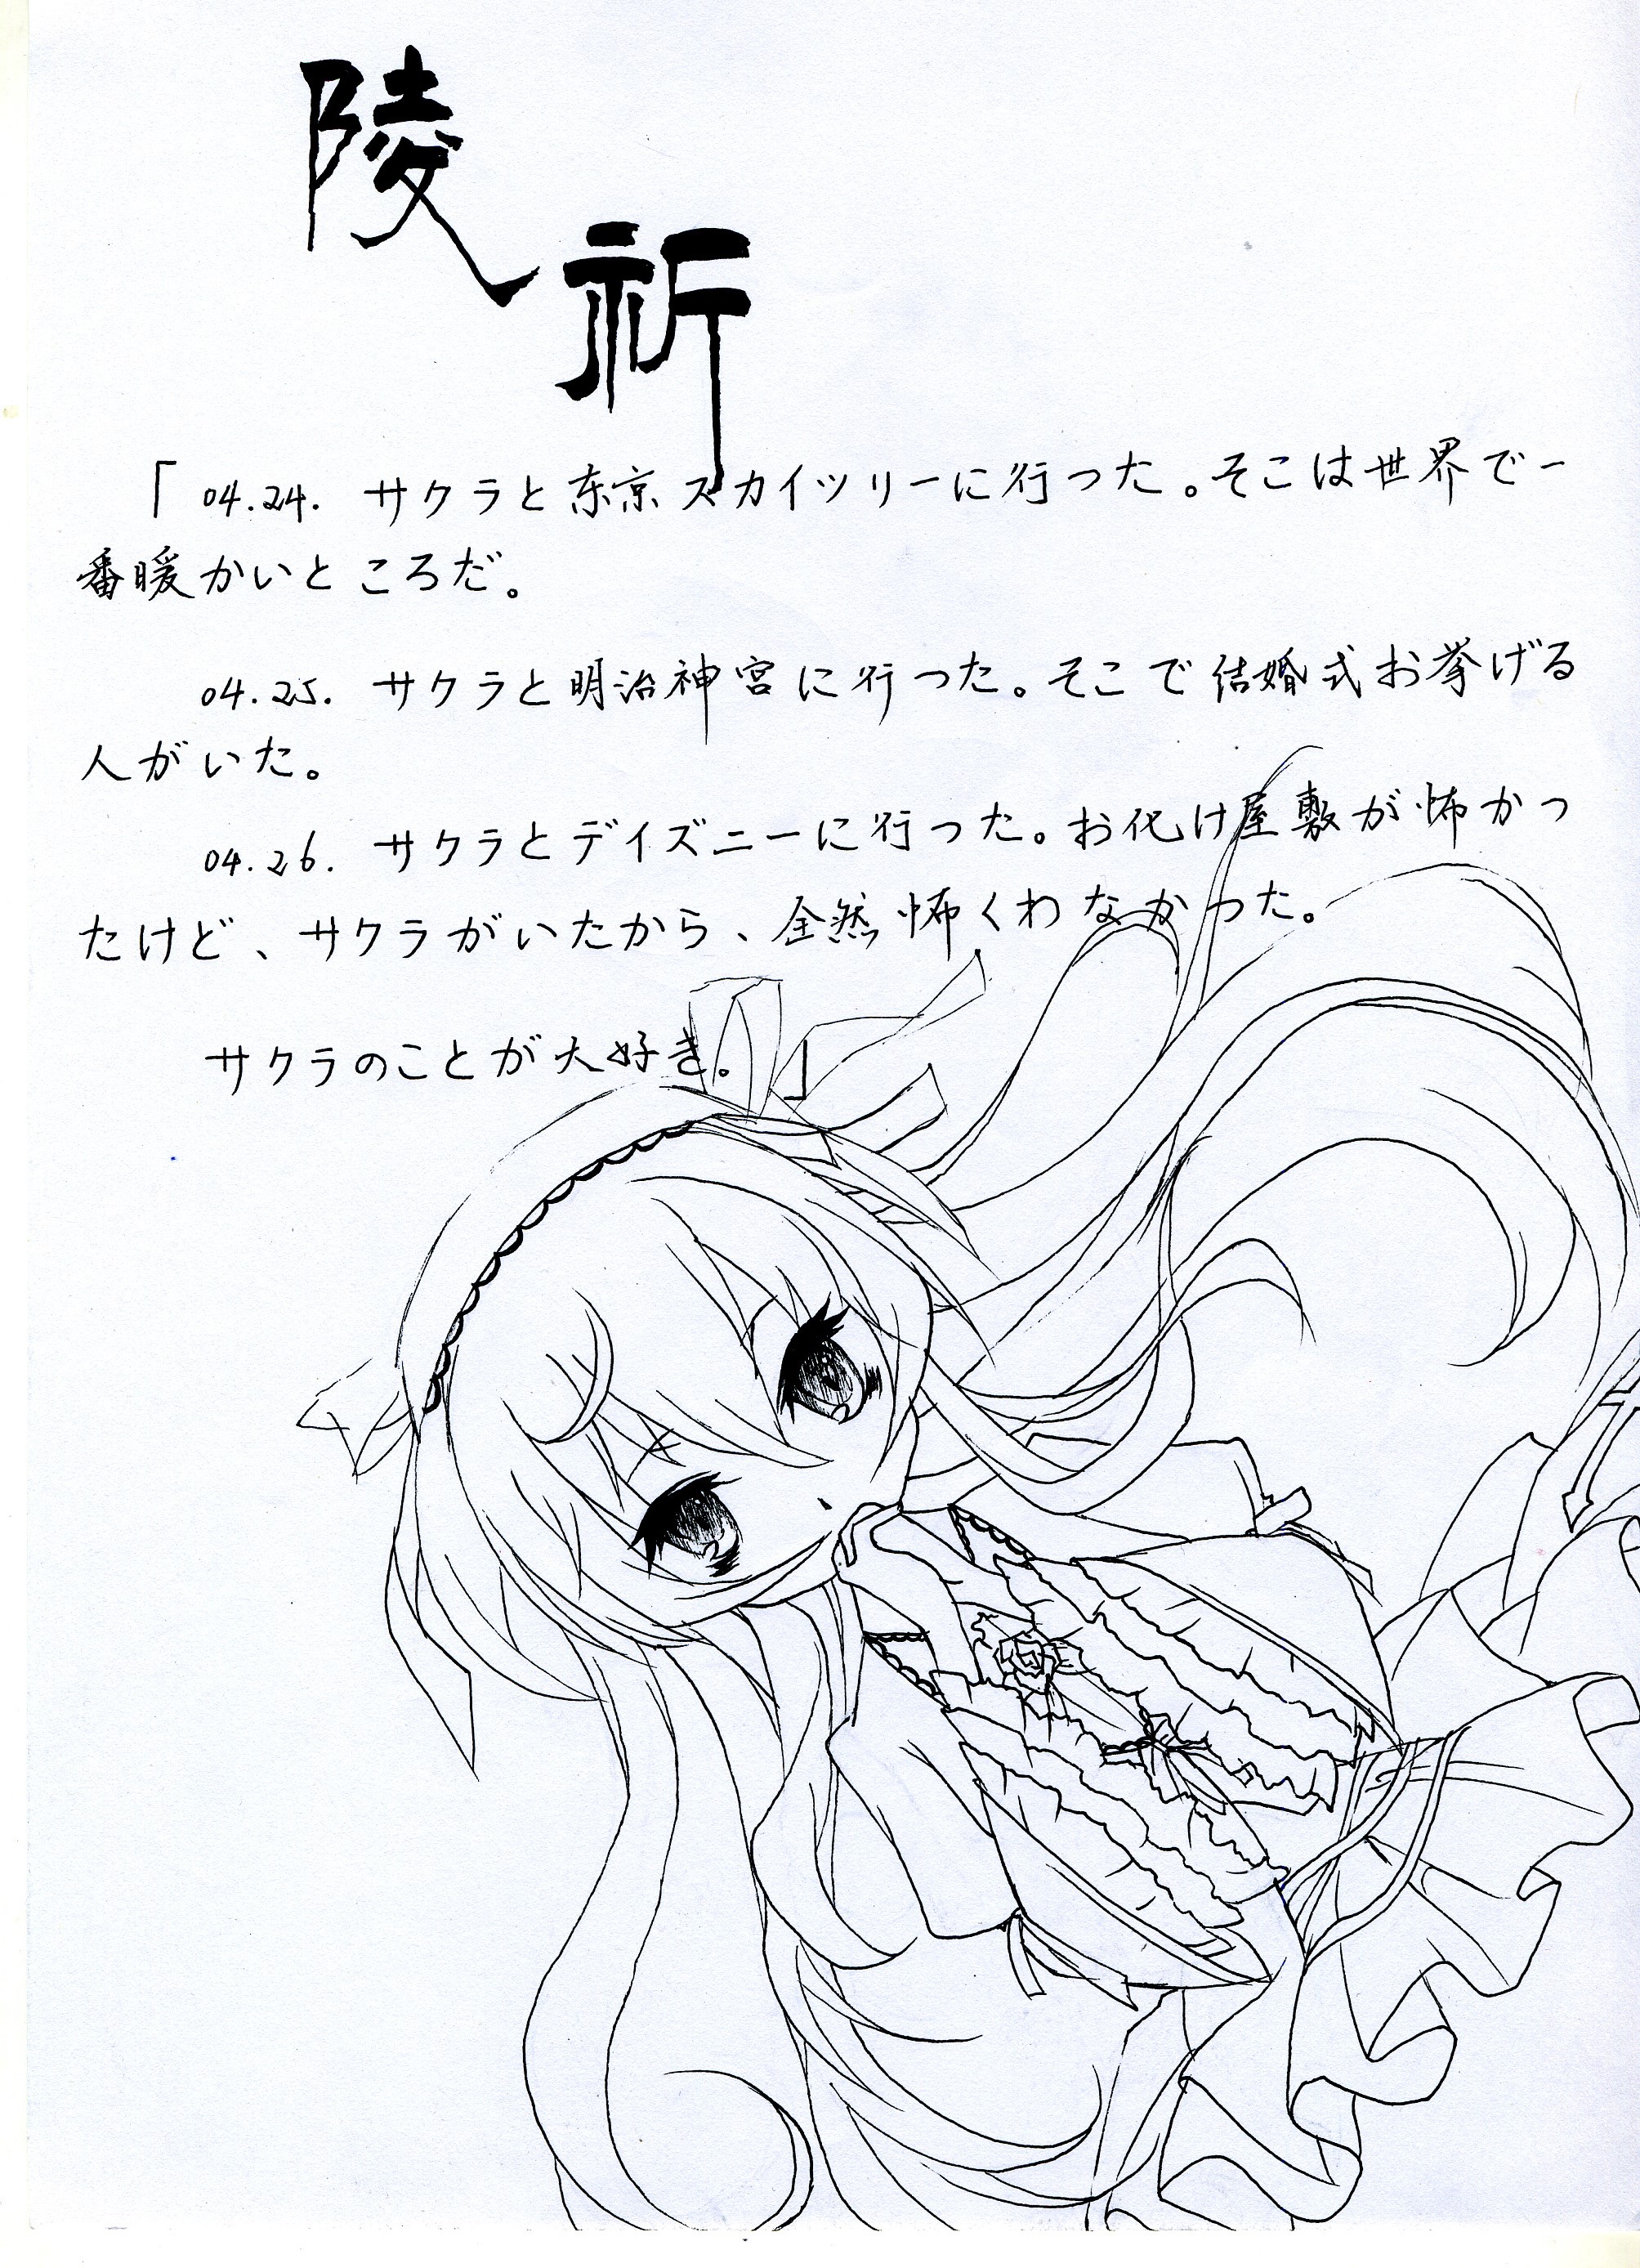 陵祈
「04.24. サクラと东京スカイツリーに行つた。そこは世界で一
番暖かいところだ。
04.25. サクラと明治神宮に行つた。そこで結婚式お挙げる
人がいた。
04.26. サクラとデイズニーに行った。お化け屋敷が怖かっ
たけど、サクラがいたから、全然怖くわなかった。
サクラのことが大好き。」